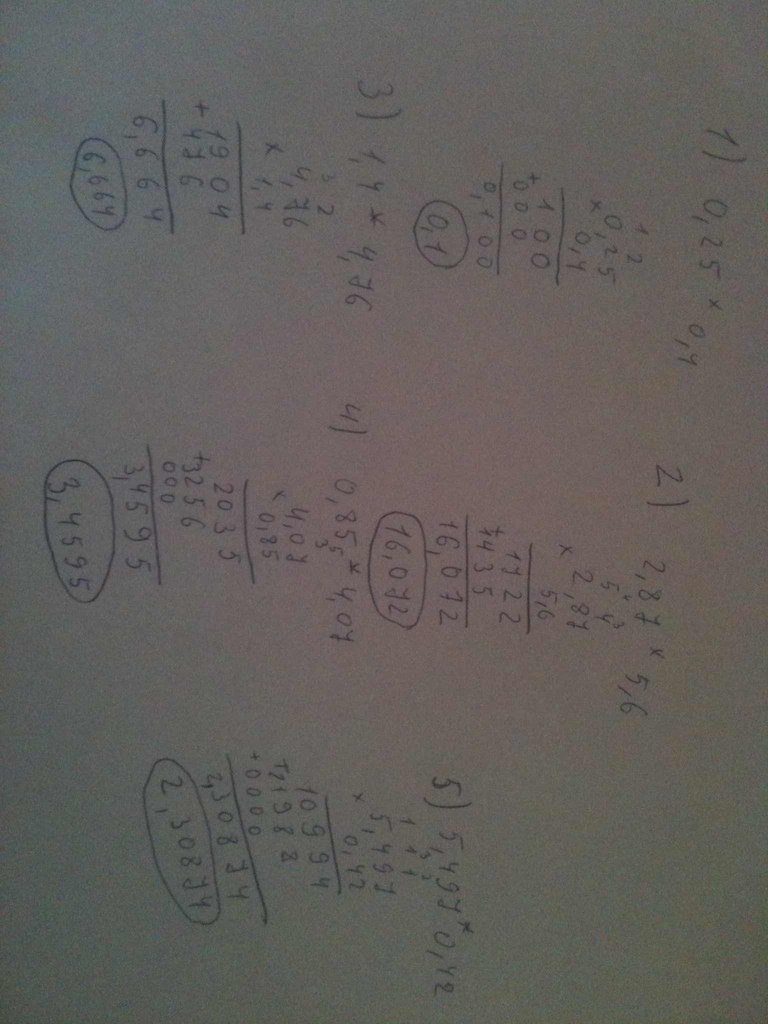 1) 0,25 × 0,4
1 2
0,25
× 0,4
100
+ 000
0,100
0,1
2) 2,87 × 5,6
4 3
5 4
2,87
× 5,6
1722
+ 1435
16,072
16,072
3) 1,4 * 4,76
3 2
4,76
× 1,4
1904
+ 476
6,664
6,664
4) 0,85 * 4,07
5
3
4,07
× 0,85
2035
+ 3256
000
3,4595
3,4595
5) 5,497 * 0,42
1 3 2
1 1 1
5,497
× 0,42
10994
+ 21988
+ 0000
2,30874
2,30874